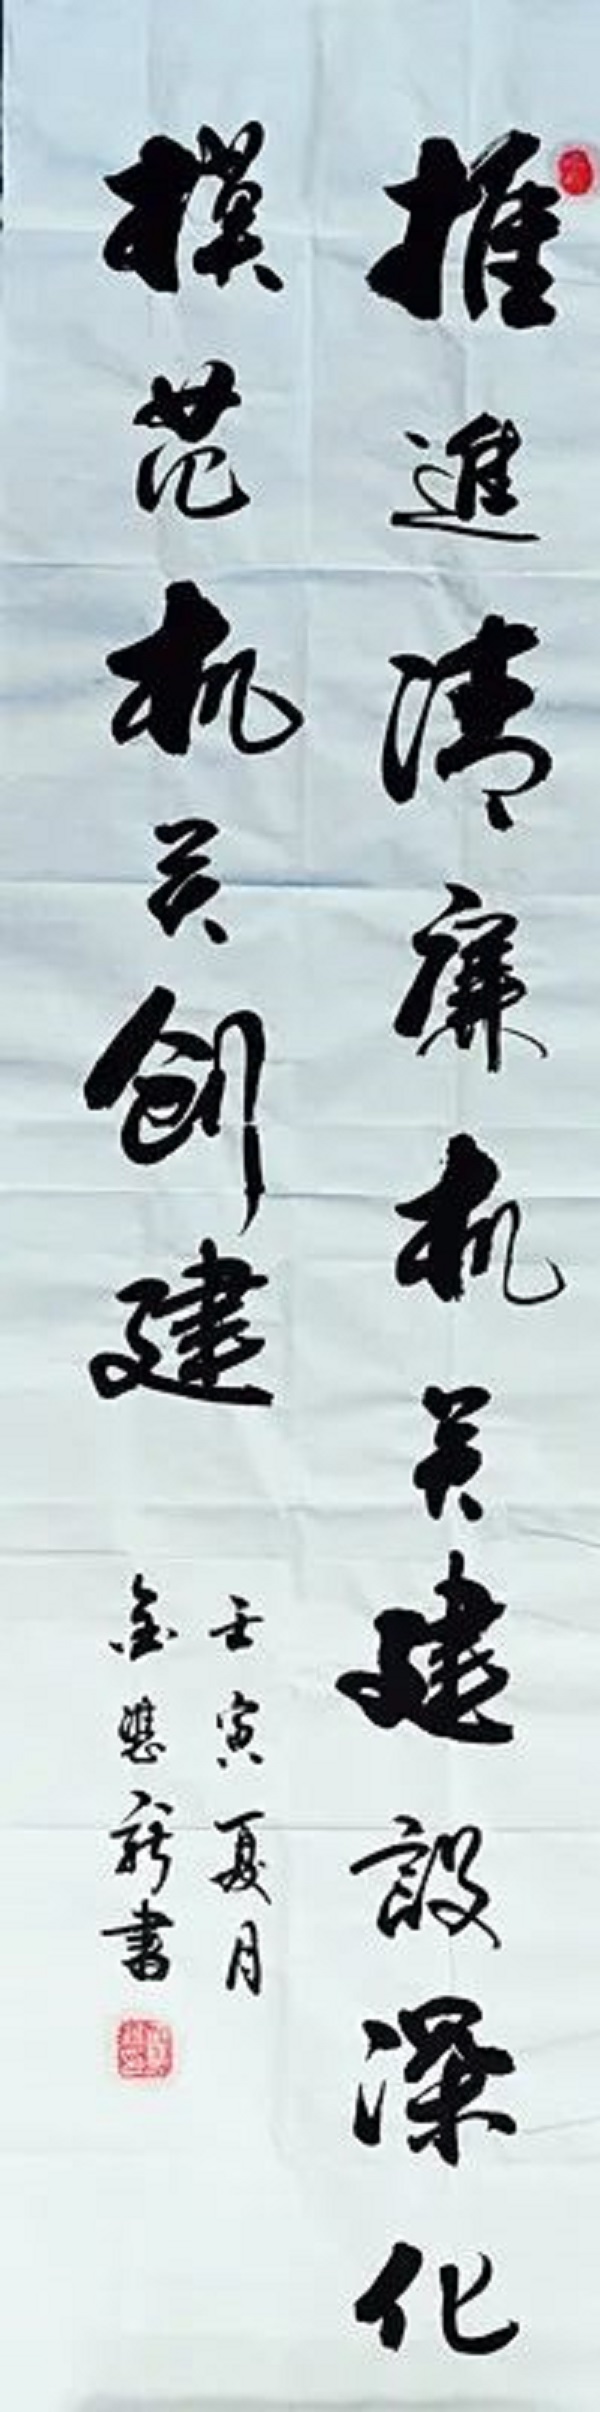 推進清廉机关建設深化
模范机关创建
壬寅夏月
金
書